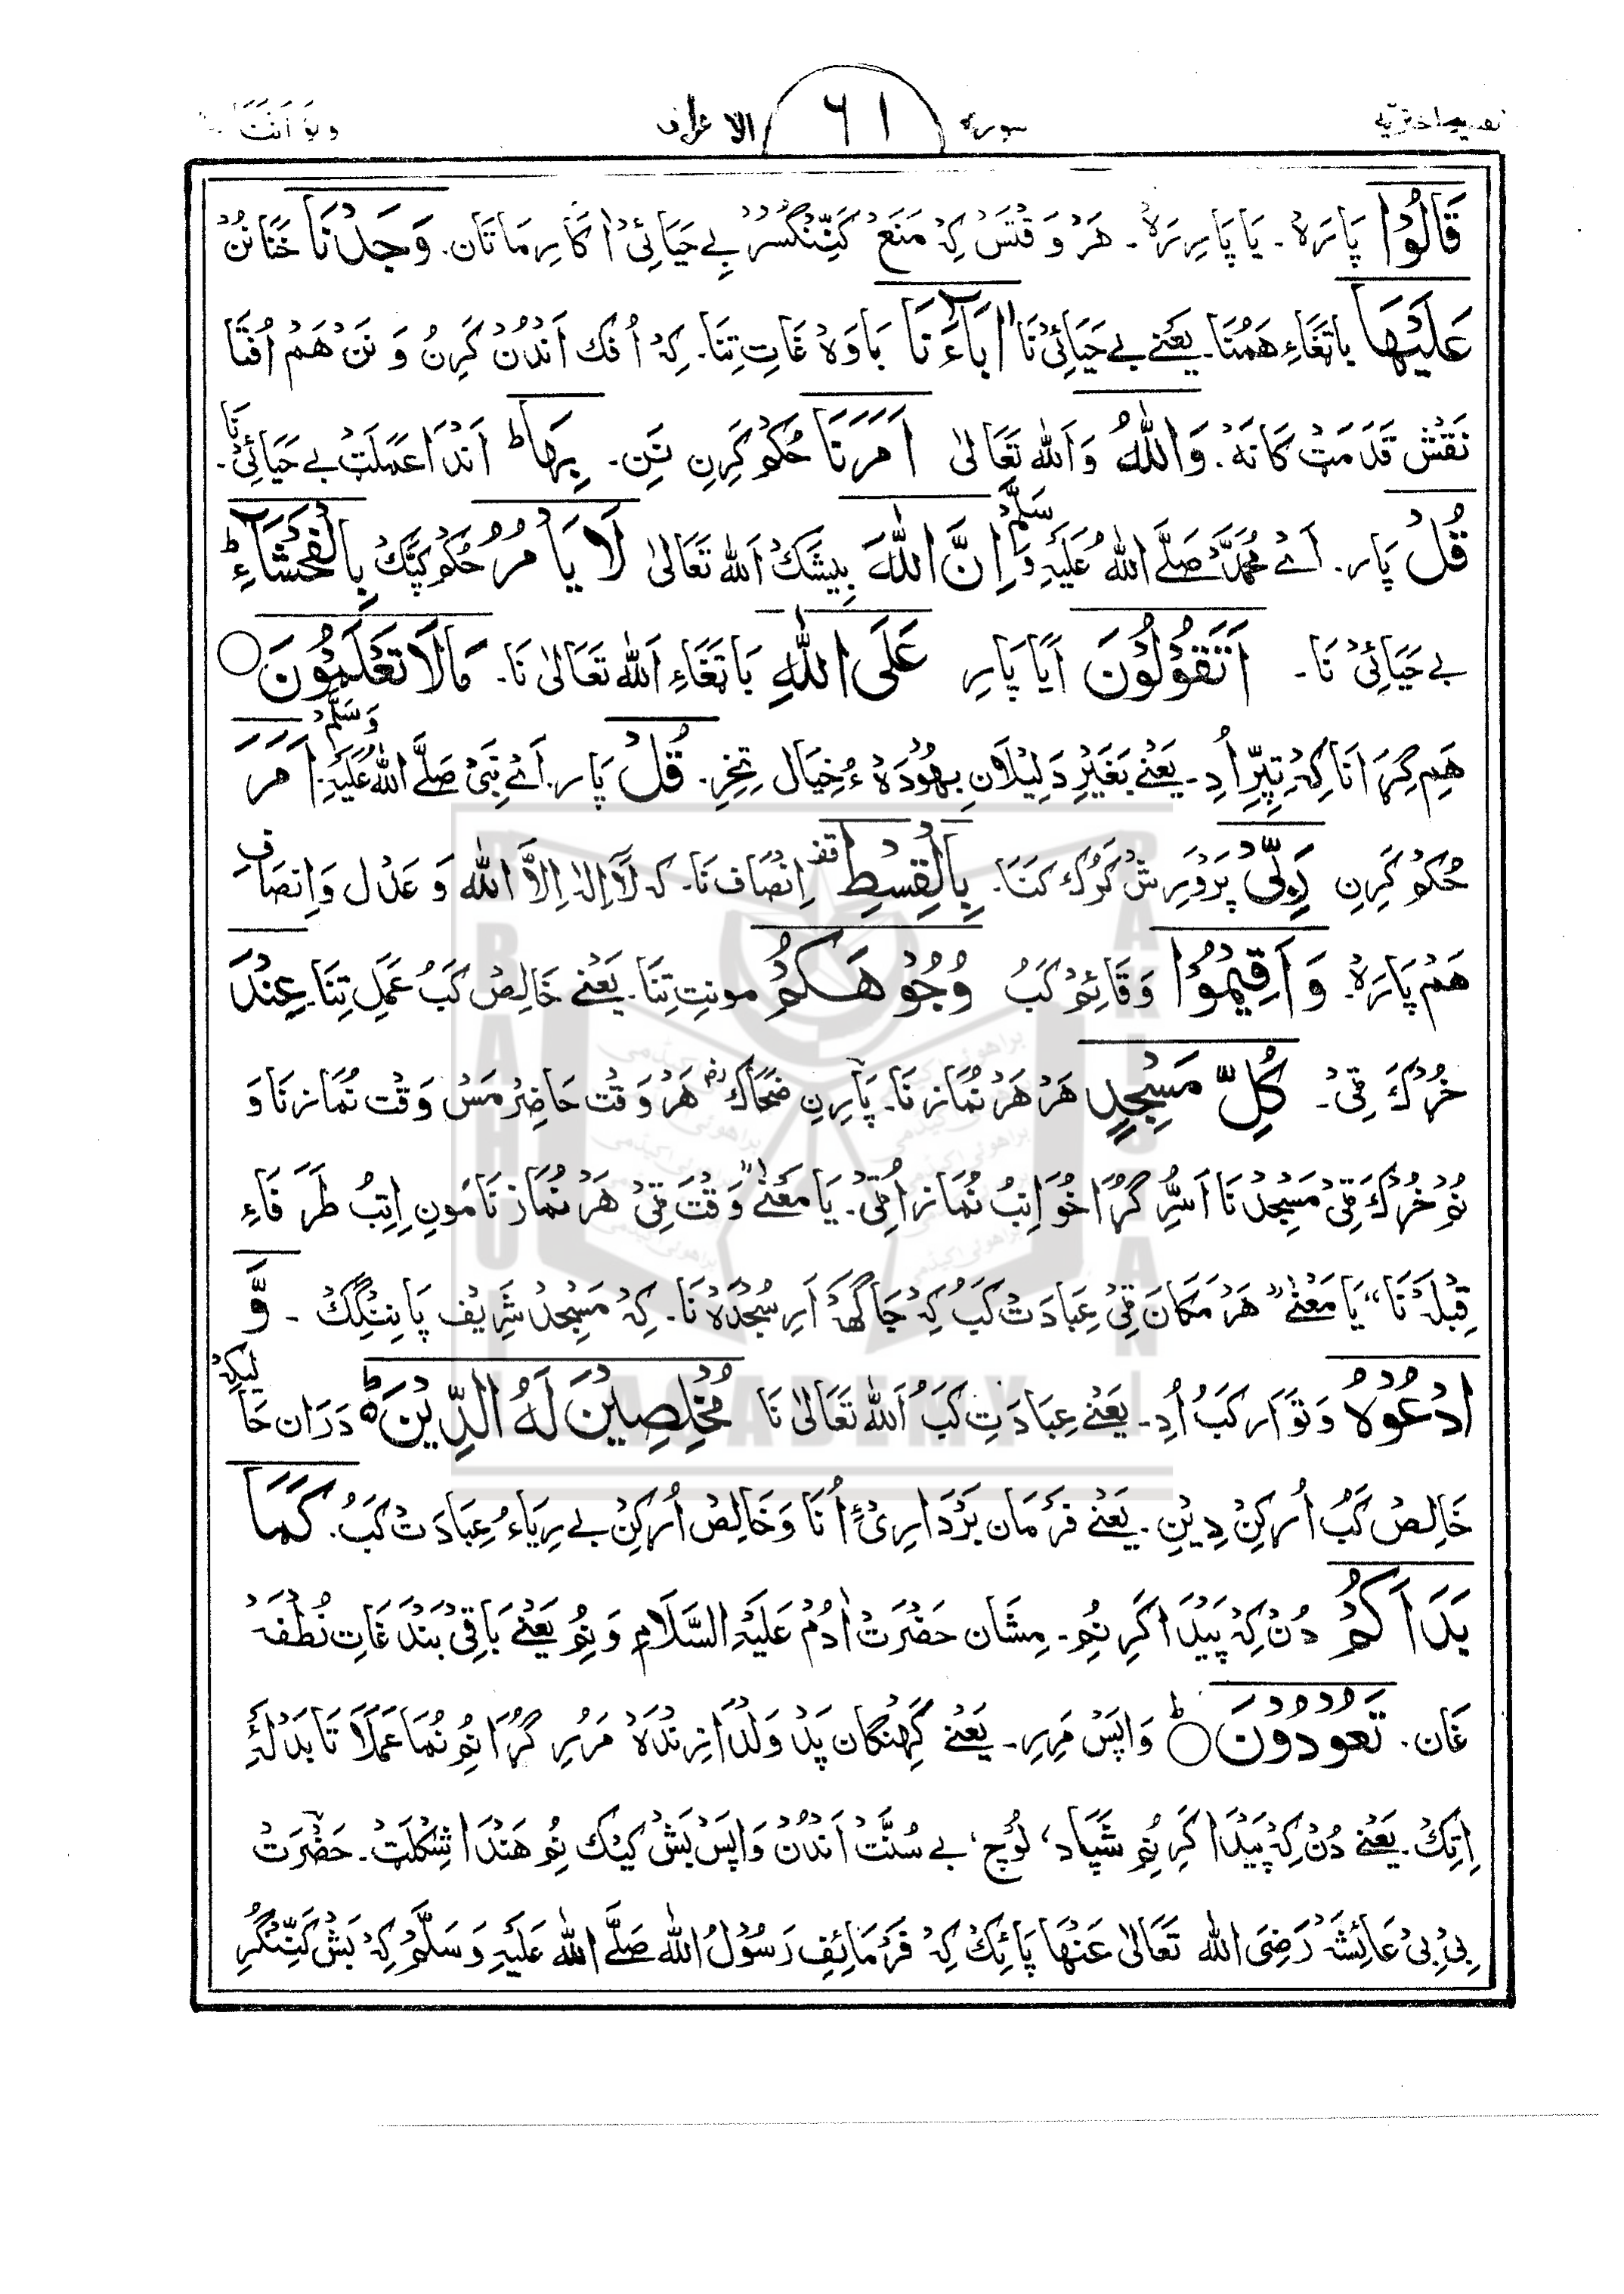 تفسیر اختریہ سورہ ٦١ الاعراف ولو اننا
قَالُوْا پَارَہ۔ یَا پَارِرَہ۔ ھَرْ وَقْتَسْ کِہْ مَنَعْ کَنِّنْگُسُرْ بے حَیَائِیْ ا کَارِمَاتَان۔ وَجَدْنَا خَنَانَنْ
عَلَیْھَا بَاتِغَاءِ ھَمُنَا۔ یَعْنے بے حَیَائِیْ نَا اٰبَآءَنَا بَاوَہْ غَاتِ تِنَا۔ کِہْ اُفک اَنْدُنْ کَرِنُ وَ نَنْ ھَمْ اُفْتَا
نَقْشِ قَدَمَتْ کَانَہْ۔ وَاللّٰهُ وَاَللّٰه تَعَالیٰ اَمَرَنَا حُکْم کَرِنِ نَنِ۔ بِھَا ط اَنْدَا عَمَلَتْ بے حَیَائِیْ نَا۔
قُلْ پَار۔ اَے مُحَمَّدْ صَلَّے اللّٰهُ عَلَیْہِ وَسَلَّمْ اِنَّ اللّٰهَ بِیشَکْ اَللّٰه تَعَالیٰ لَا یَاْمُرُ حُکْم کَپَکْ بِالْفَحْشَآءِ ط
بے حَیَائِیْ نَا۔ اَتَقُوْلُوْنَ اَیَا پَارِرِ عَلَی اللّٰهِ بَاتِغَاءِ اَللّٰه تَعَالیٰ نَا۔ مَا لَا تَعْلَمُوْنَ ○
ھَمِ گِرَانَا کِہْ تِپِرِّ اُدِ۔ یَعْنے بَغَیْرِ دَلِیْلَانِ بِھُوْدَہْ ءُ خِیَال تِخِرِ۔ قُلْ پَار۔ اَے نَبِیْ صَلَّے اللّٰهُ عَلَیْہِ وَسَلَّمْ۔ اَمَرَ
حُکْم کَرِنِ رَبِّیْ پَرْوَرِشْ کَرُکْ کَنَا۔ بِالْقِسْطِ قف اِنْصَاف نَا۔ کہ لَآ اِلٰہَ اِلَّا اللّٰه وَ عَدْل وَ اِنصَاف
ھَمْ پَارَہْ۔ وَاَقِیْمُوْا وَ قَائِمْ کَبُ وُجُوْھَکُمْ مونتِ تِنَا۔ یَعْنے خَالِصْ کَبُ عَمَلِ تِنَا۔ عِنْدَ
خُرُکَ ٹِیْ۔ کُلِّ مَسْجِدٍ ھَرْ ھَرْ نُمَازْ نَا۔ پَارِن ضَحَّاک ھَرْ وَقْت حَاضِرْ مَسْ وَقْت نُمَاز نَا وَ
نُمْ خُرُکَ ٹِیْ مَسْجِدْ نَا اَسُّرِ گُرَا خُوَانِبُ نُمَاز اُٹِیْ۔ یَا مَعْنٰے "وَقْتَ ٹِیْ ھَرْ نُمَازْ نَا مونِ اِتِبُ طَرَفَاءِ
قِبْلَہْ نَا" یَا مَعْنٰے "ھَرْ مَکَانَ ٹِیْ عِبَادَتْ کَبُ کِہْ جَاگَہْ اَرِ سُجْدَہْ نَا۔ کِہْ مَسْجِدْ شَرِیْف پَانِنْگِکْ۔ وَّ
ادْعُوْہُ وَ تَوَار کَبُ اُدِ۔ یَعْنے عِبَادَتِ کَبُ اَللّٰه تَعَالیٰ نَا مُخْلِصِیْنَ لَهُ الدِّیْنَ ۵ ط دَرَان حَالیکہ
خَالِصْ کَبُ اُرکِنْ دِیْنِ۔ یَعْنے فَرْمَان بَرْدَارِیْ ءِ اُنَا وَ خَالِصْ اُرکِنْ بے رِیَاءُ عِبَادَتْ کَبُ۔ کَمَا
بَدَاَکُمْ دُنْ کِہْ پَیْدَا کَرِ نُمِ۔ مِشَان حَضْرَتْ اٰدَمْ عَلَیْہِ السَّلَامِ وَ نُمِ یَعْنے بَاقِیْ بَنْدَغَاتِ نُطْفَہْ
غَان۔ تَعُوْدُوْنَ ○ ط وَاپَسْ مَرِرِ۔ یَعْنے کَھِنْگان پَدْ وَلْدَا زِنْدَہْ مَرِرِ گُرَا نُمِ نُمَا عَمَلَا تَا بَدْلَہْءِ
اِتِکْ۔ یَعْنے دُنْ کِہْ پَیْدَا کَرِ نُمِ شَپَاد، لُوْچ، بے سُنَّتْ اَنْدُنْ وَاپَسْ بَشْ کیْک نُمِ ھَنْدَا شِکْلَتْ۔ حَضْرَتْ
بِیْ بِیْ عَائِشَہْ رَضِیَ اللّٰه تَعَالیٰ عَنْھَا پَائِکْ کِہْ فَرْمَائِفِ رَسُوْلُ اللّٰه صَلَّے اللّٰه عَلَیْہِ وَسَلَّمْ کِہْ بَشْ کَنِّنْگُرِ